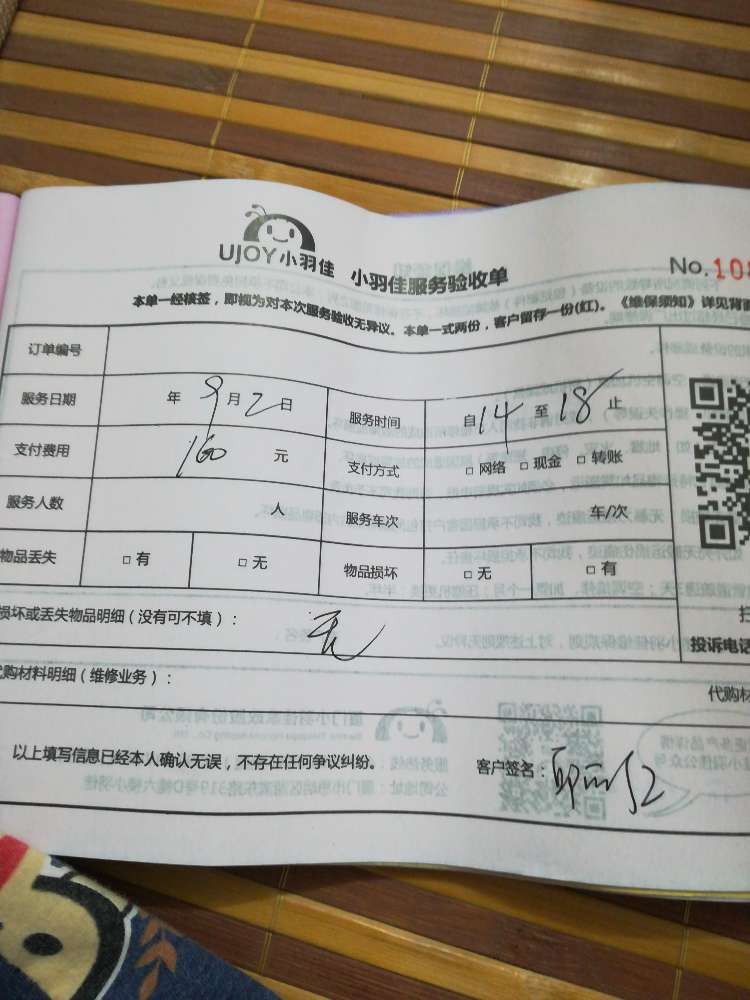 UJOY小羽佳 小羽佳服务验收单 No.108
本单一经核签，即视为对本次服务验收无异议。本单一式两份，客户留存一份(红)。《维保须知》详见背面
订单编号
服务日期 年 9 月 2 日 服务时间 自 14 至 18 止
支付费用 160 元 支付方式 □ 网络 □ 现金 □ 转账
服务人数 人 服务车次 车/次
物品丢失 □ 有 □ 无 物品损坏 □ 无 □ 有
损坏或丢失物品明细（没有可不填）： 无
投诉电话
代购材料明细（维修业务）： 代购材
以上填写信息已经本人确认无误，不存在任何争议纠纷。 客户签名：